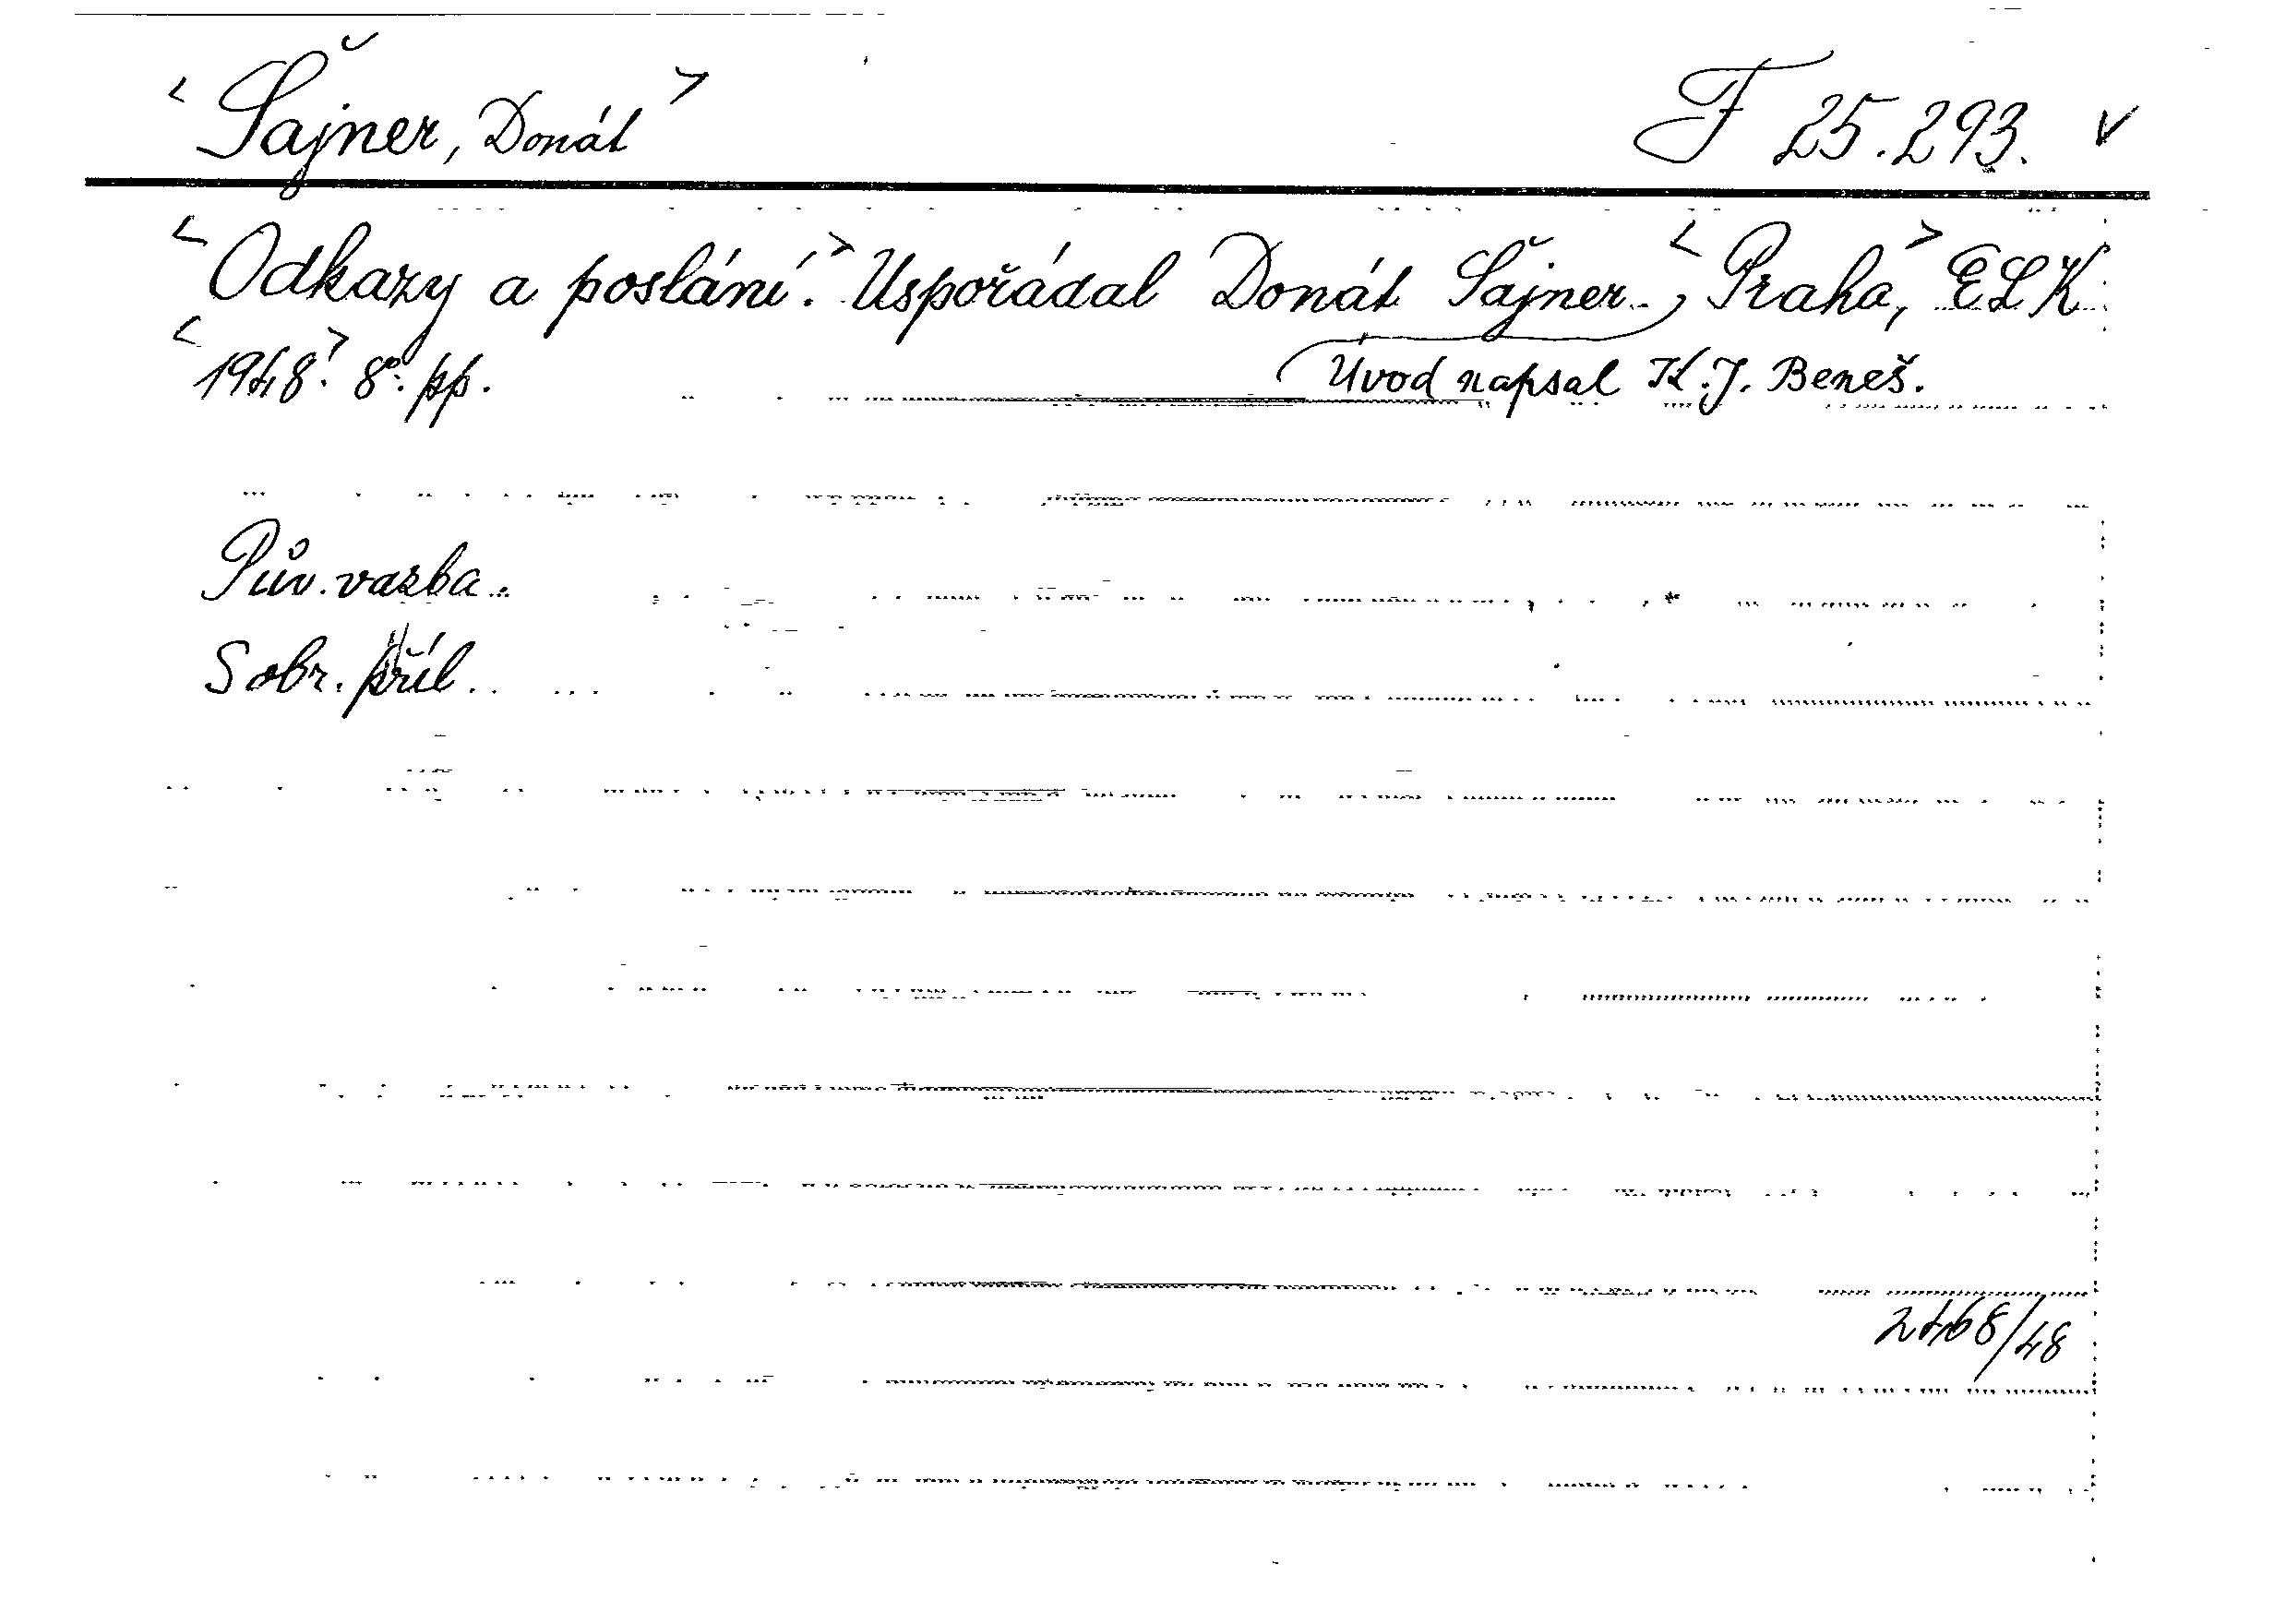 < Šajner, Donát > F 25.293. v
< Odkazy a poslání. > Uspořádal Donát Šajner. , < Praha, > ELK
< 1948. > 8°. pp. Úvod napsal K. J. Beneš.
Pův. vazba.
S obr. příl.
2468/48